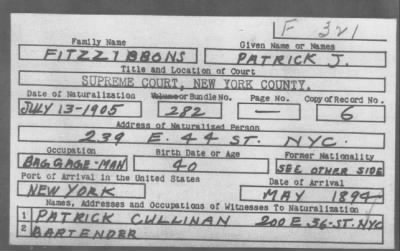 F 321
Family Name Given Name or Names
FITZZIBBONS PATRICK J.
Title and Location of Court
SUPREME COURT, NEW YORK COUNTY.
Date of Naturalization Volume or Bundle No. Page No. Copy of Record No.
JULY 13-1905 282 — 6
Address of Naturalized Person
239 E. 44 ST. NYC.
Occupation Birth Date or Age Former Nationality
BAGGAGE-MAN 40 SEE OTHER SIDE
Port of Arrival in the United States Date of Arrival
NEW YORK MAY 1894
Names, Addresses and Occupations of Witnesses To Naturalization
1 PATRICK CULLINAN 200 E. 36-ST. NYC
2 BARTENDER